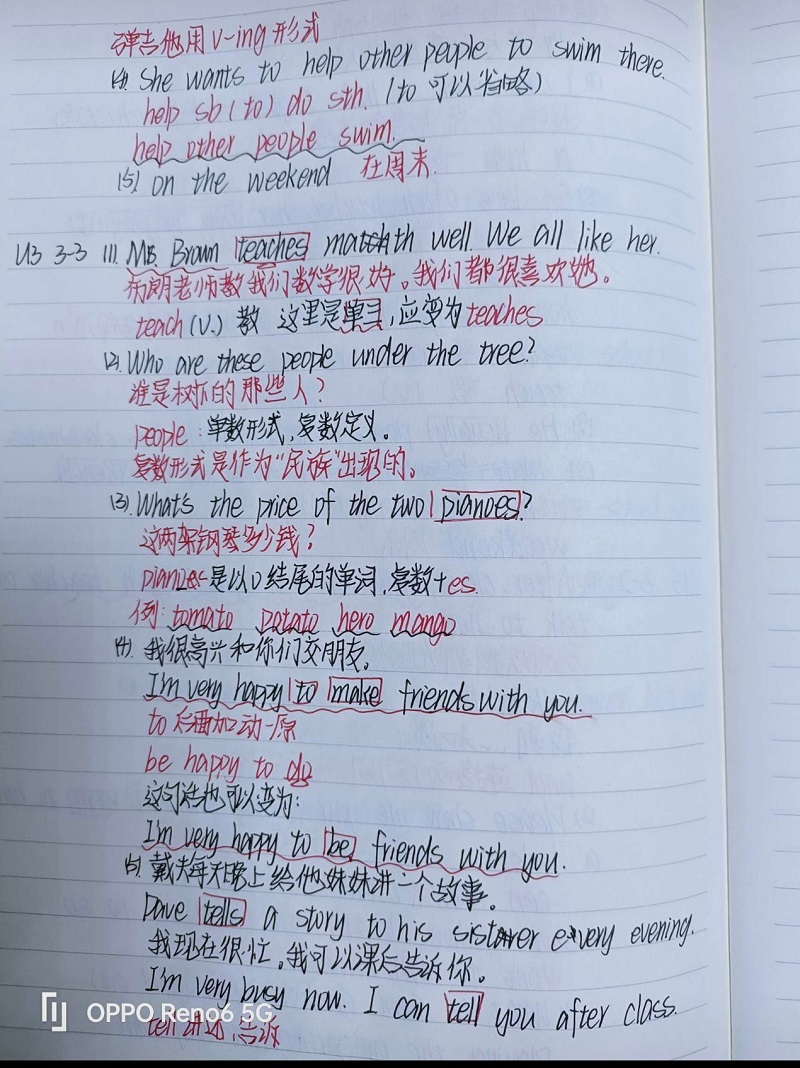 弹吉他用 v-ing 形式
(4) She wants to help other people to swim there.
help sb (to) do sth. (to 可以省略)
help other people swim.
(5) on the weekend 在周末.
U3 3-3 (1). Ms. Brown teaches math well. We all like her.
布朗老师教我们数学很好。我们都很喜欢她。
teach (v.) 教 这里是单三,应变为teaches
(2). Who are these people under the tree?
谁是树下的那些人?
people: 单数形式,复数定义。
复数形式是作为“民族”出现的。
(3). What's the price of the two pianoes?
这两架钢琴多少钱?
是以o结尾的单词,复数+es.
例: tomato potato hero mango
(4). 我很高兴和你们交朋友。
I'm very happy to make friends with you.
to 后面加动原
be happy to do
这句话也可以变为:
I'm very happy to be friends with you.
(5) 戴夫每天晚上给他妹妹讲一个故事。
Dave tells a story to his sister every evening.
我现在很忙。我可以课后告诉你。
I'm very busy now. I can tell you after class.
tell 讲述,告诉
OPPO Reno6 5G